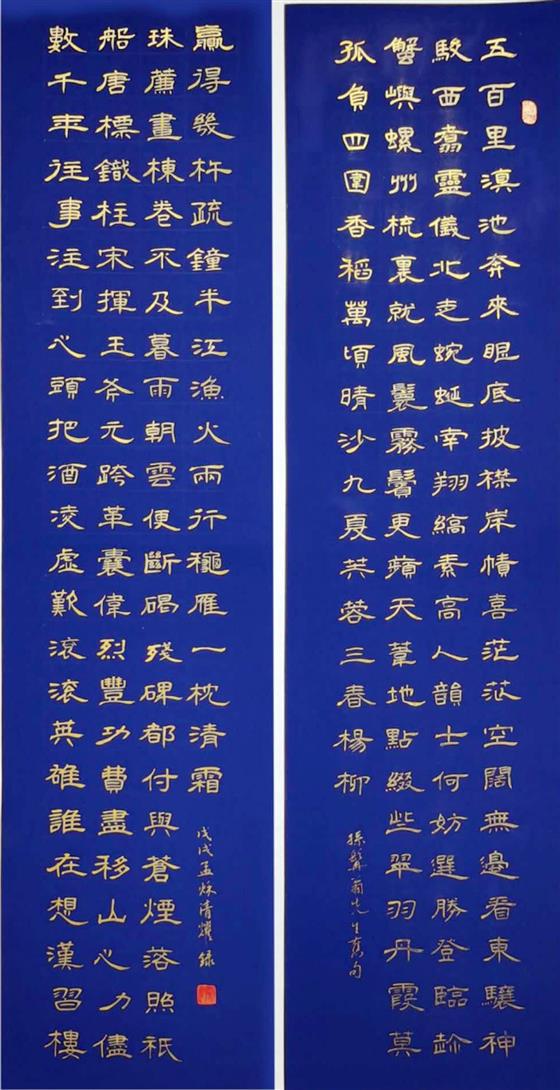 五百里滇池奔來眼底披襟岸幘喜茫茫空闊無邊看東驤神
駿西翥靈儀北走蜿蜒南翔縞素高人韻士何妨選勝登臨趁
蟹嶼螺州梳裹就風鬟霧鬢更蘋天葦地點綴些翠羽丹霞莫
孤負四圍香稻萬頃晴沙九夏芙蓉三春楊柳
孫髯翁先生舊句
數千年往事注到心頭把酒凌虛歎滾滾英雄誰在想漢習樓
船唐標鐵柱宋揮玉斧元跨革囊偉烈豐功費盡移山心力儘
珠簾畫棟卷不及暮雨朝雲便斷碣殘碑都付與蒼煙落照祇
贏得幾杵疏鐘半江漁火兩行穐雁一枕清霜
戊戌孟秋清耀錄